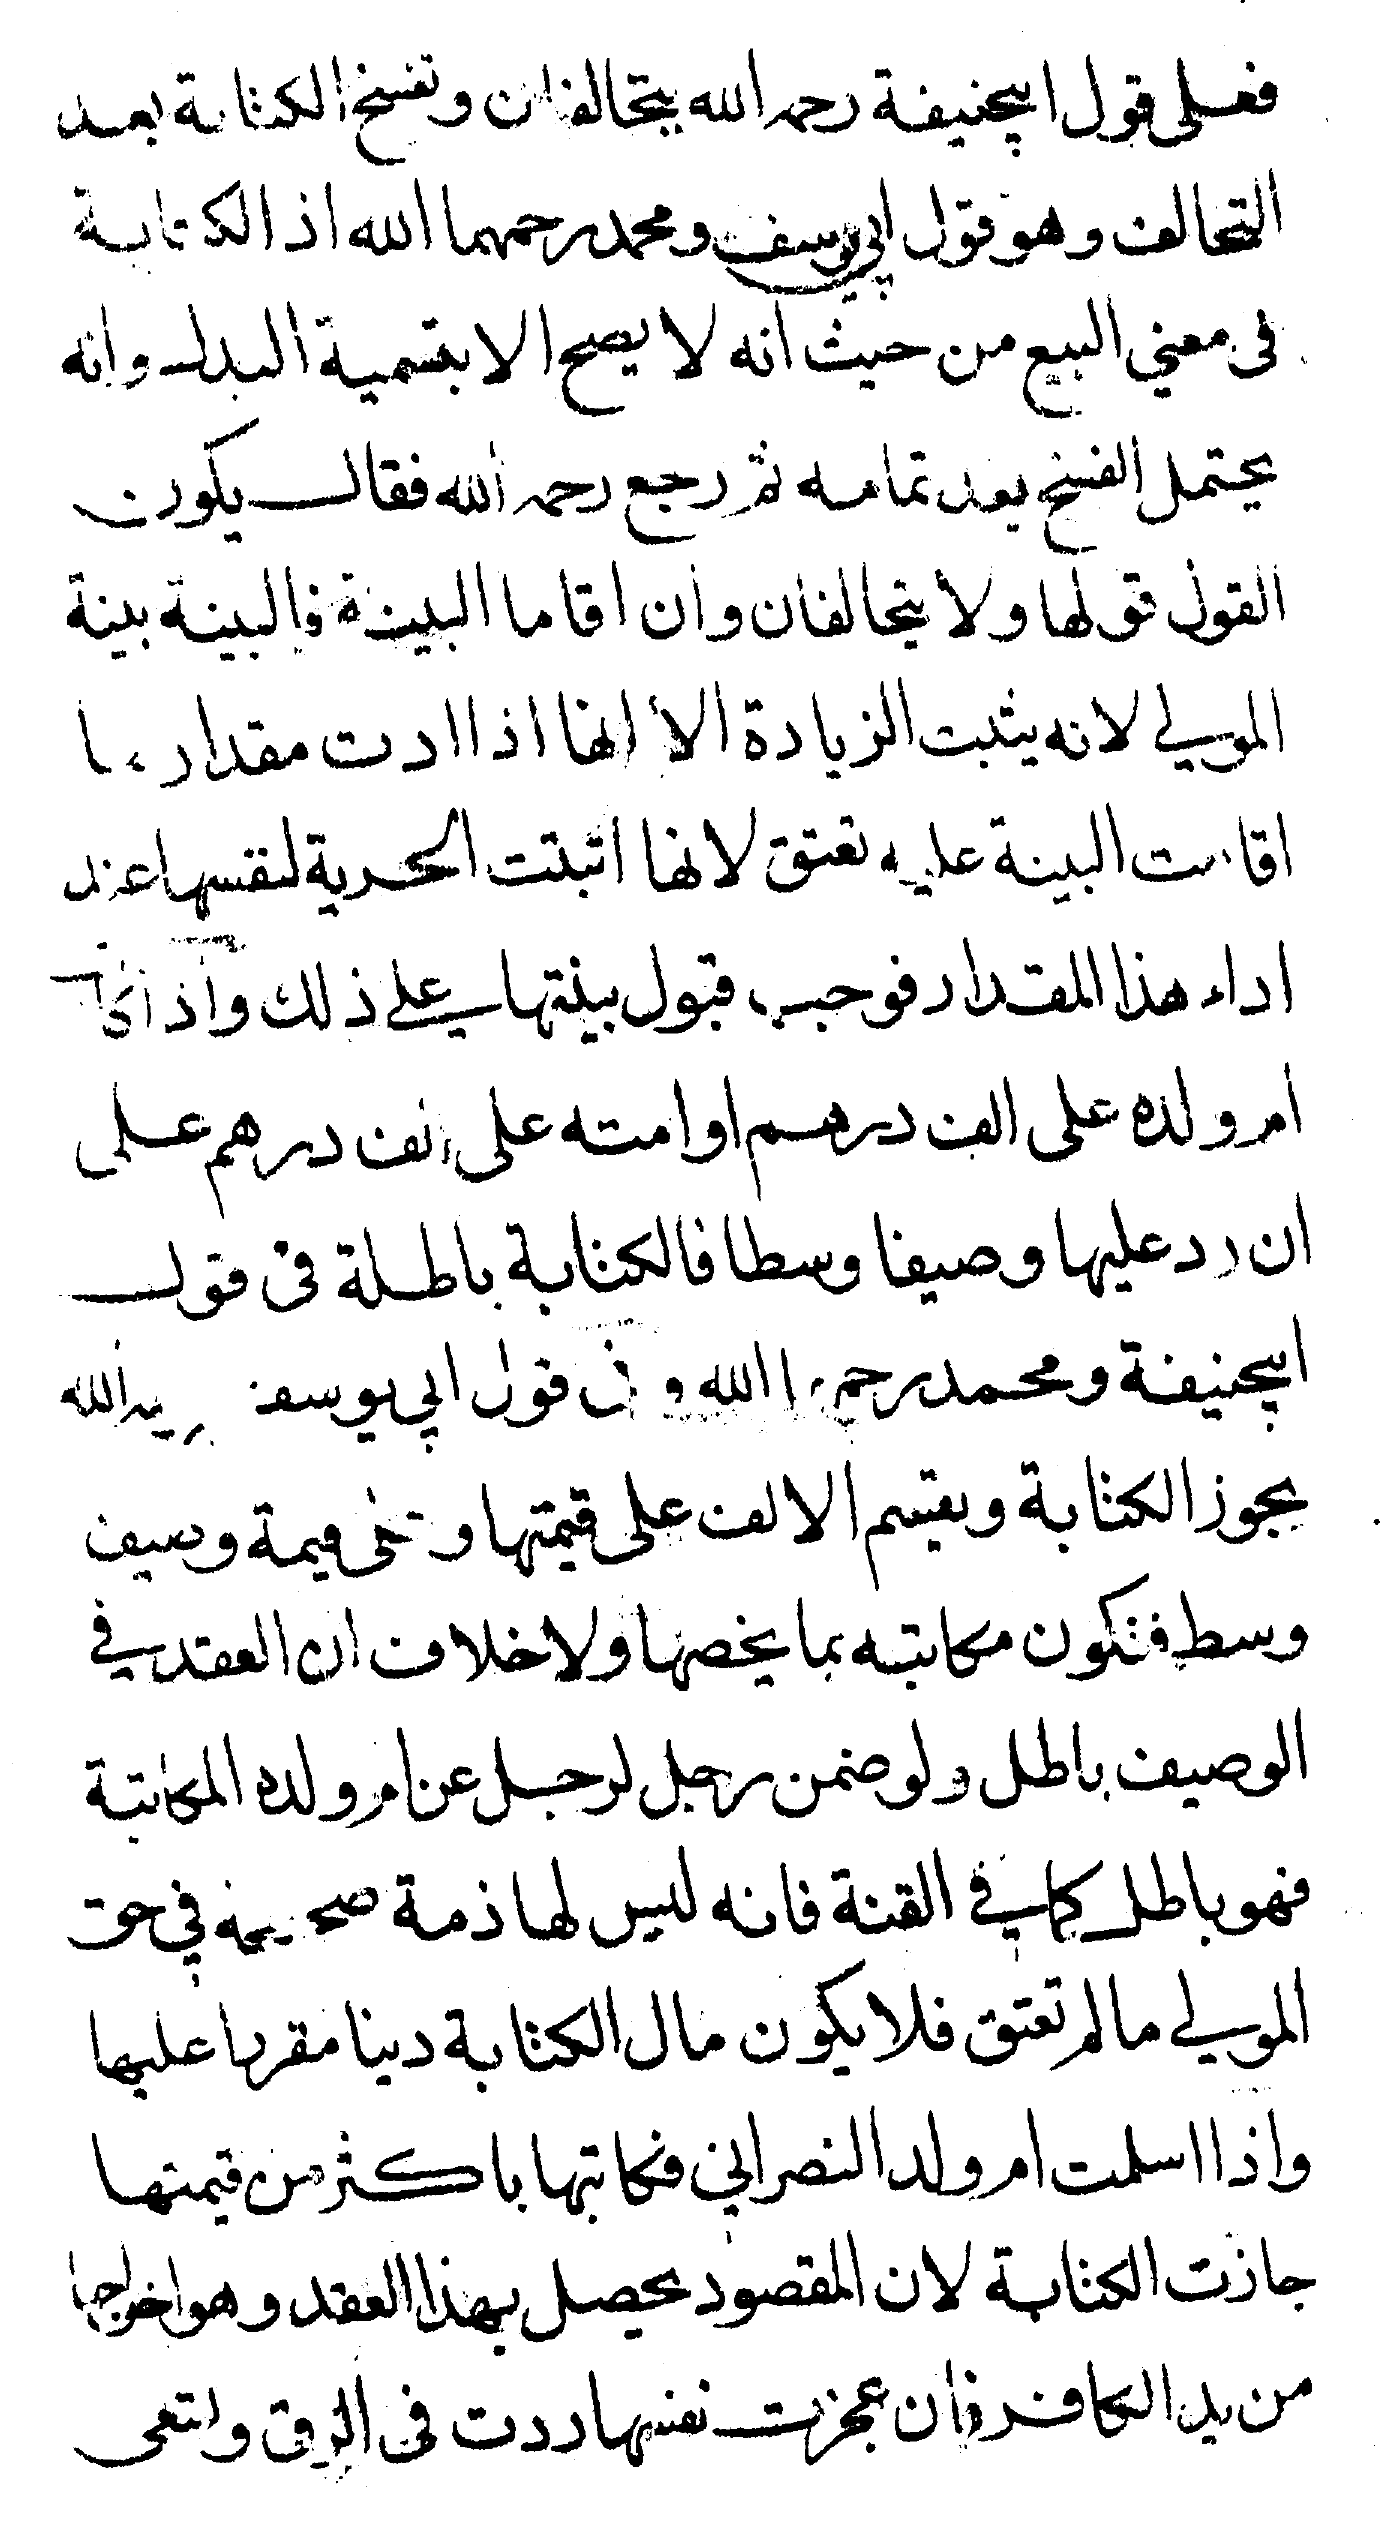 فعلى قول ابيحنيفة رحمه الله يتحالفان وتفسخ الكتابة بعد
التحالف وهو قول ابي يوسف ومحمد رحمهما الله اذ الكتابة
فى معنى البيع من حيث انه لا يصح الا بتسمية البدل وانه
يحتمل الفسخ بعد تمامه ثم رجع رحمه الله فقال يكون
القول قولها ولا يتحالفان وان اقاما البينة فالبينة بينة
المولي لانه يثبت الزيادة الا انها اذا ادت مقدار ما
اقامت البينة عليه تعتق لانها اثبتت الحرية لنفسها عند
اداء هذا المقدار فوجب قبول بينتها علي ذلك واذا كاتب
ام ولده على الف درهم او امته على الف درهم على
ان رد عليها وصيفا وسطا فالكتابة باطلة فى قول
ابيحنيفة ومحمد رحمهما الله وفى قول ابي يوسف رحمه الله
يجوز الكتابة ويقسم الالف على قيمتها وعلى قيمة وصيف
وسط فتكون مكاتبه بما يخصها ولا خلاف ان العقد في
الوصيف باطل ولو ضمن رجل لرجل عن ام ولده المكاتبة
فهو باطل كما في القنة فانه ليس لها ذمة صحيحة في حق
المولي ما لم تعتق فلا يكون مال الكتابة دينا مقررا عليها
واذا اسلمت ام ولد النصراني فكاتبها باكثر من قيمتها
جازت الكتابة لان المقصود يحصل بهذا العقد وهو اخراجها
من يد الكافر فان عجزت نفسها ردت فى الرق وتسعى